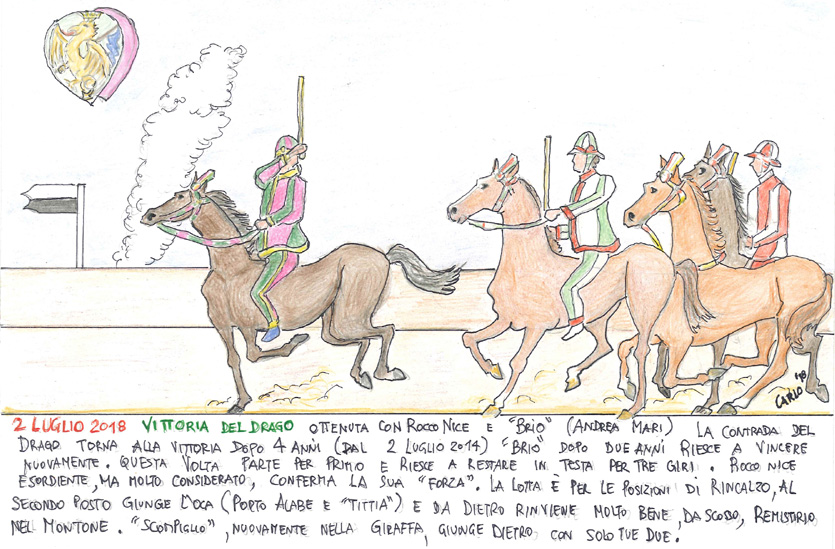 CARLO '18
2 LUGLIO 2018 VITTORIA DEL DRAGO OTTENUTA CON ROCCO NICE E "BRIO" (ANDREA MARI) LA CONTRADA DEL
DRAGO TORNA ALLA VITTORIA DOPO 4 ANNI (DAL 2 LUGLIO 2014) "BRIO" DOPO DUE ANNI RIESCE A VINCERE
NUOVAMENTE. QUESTA VOLTA PARTE PER PRIMO E RIESCE A RESTARE IN TESTA PER TRE GIRI. ROCCO NICE
ESORDIENTE, MA MOLTO CONSIDERATO, CONFERMA LA SUA "FORZA". LA LOTTA È PER LE POSIZIONI DI RINCALZO, AL
SECONDO POSTO GIUNGE L'OCA (PORTO ALABE E "TITTIA") E DA DIETRO RINVIENE MOLTO BENE, DA SCOSSO, REMISTIRIO,
NEL MONTONE. "SCOMPIGLIO", NUOVAMENTE NELLA GIRAFFA, GIUNGE DIETRO CON SOLO TUE DUE.